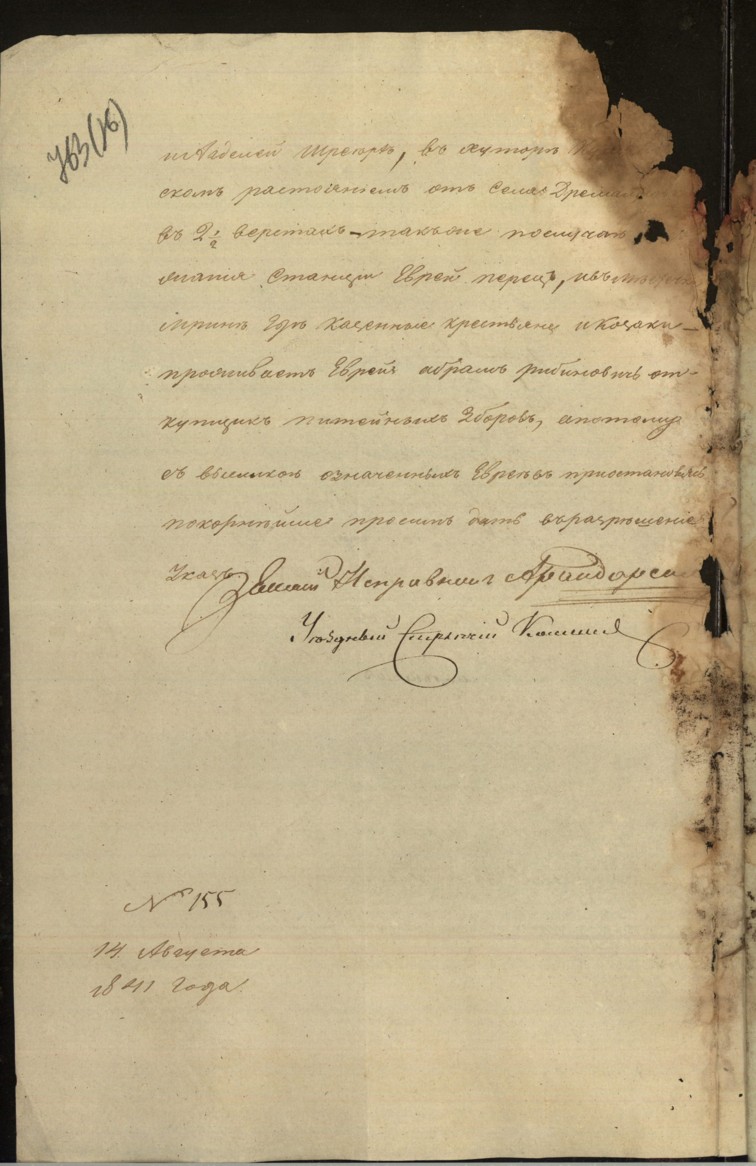 763(16)
и Адельей Шреюръ, въ хуторъ
скомъ растояніемъ от села Дрема
въ 2 1/2 верстахъ такъже послучаю
жанія Станціи Еврей перецъ,
Мринъ гдъ казенные крестьяне и Козаки
проживаетъ Еврей абрамъ рибиновичъ от-
купщикъ питейныхъ Зборовъ, апотому
съ высилкою означенныхъ Евреевъ приостановясь
покорнъйше просимъ дать въразръшеніе
Указъ
Земскій Исправникъ
Уъздный Стряпчій
№ 155
14 Августа
1841 года